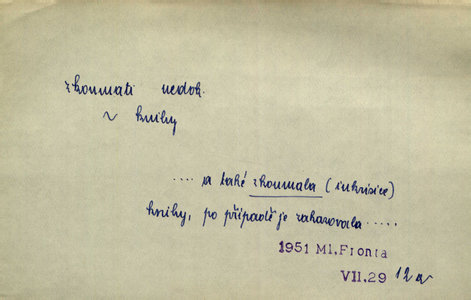 zkoumati nedok.
~ knihy
.... a také zkoumala (inkvisice)
knihy, po případě je zakazovala .....
1951 Ml. Fronta
VII.29 12a